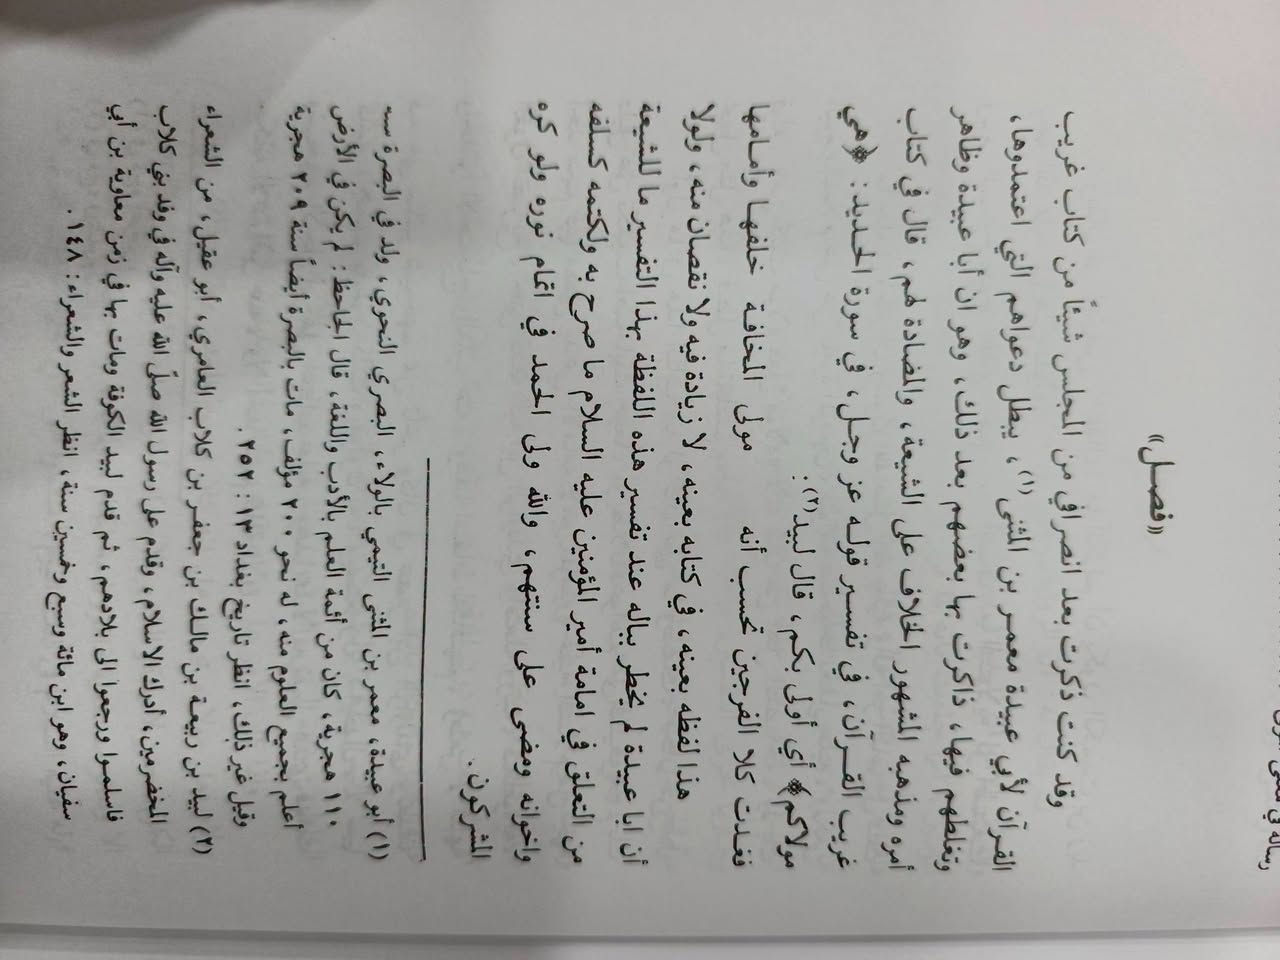 رسالة في معنى
«فصل»
وقد كنت ذكرت بعد انصرافي من المجلس شيئاً من كتاب غريب
القرآن لأبي عبيدة معمر بن المثنى(١)، يبطل دعواهم التي اعتمدوها،
وتغلطهم فيها، ذاكرت بها بعضهم بعد ذلك، وهو ان أبا عبيدة وظاهر
أمره ومذهبه المشهور الخلاف على الشيعة، والمضادة لهم، قال في كتاب
غريب القرآن، في تفسير قوله عز وجل، في سورة الحديد: ﴿هي
مولاكم﴾ أي أولى بكم، قال لبيد(٢).
فغدت كلا الفرجين تحسب أنه مولى المخافة خلفها وأمامها
هذا لفظه بعينه، في كتابه بعينه، لا زيادة فيه ولا نقصان منه، ولولا
أن ابا عبيدة لم يخطر بباله عند تفسير هذه اللفظة بهذا التفسير ما للشيعة
من التعلق في امامة أمير المؤمنين عليه السلام ما صرح به ولكتمه كسلفه
واخوانه ومضى على سنتهم، والله ولى الحمد في اتمام نوره ولو كره
المشركون.
(١) أبو عبيدة، معمر بن المثنى التيمي بالولاء، البصري النحوي، ولد في البصرة سـ
١١٠ هجرية، كان من أئمة العلم بالأدب واللغة، قال الجاحظ: لم يكن في الأرض
أعلم بجميع العلوم منه، له نحو ٢٠٠ مؤلف، مات بالبصرة أيضاً سنة ٢٠٩ هجرية
وقيل غير ذلك، انظر تاريخ بغداد ١٣: ٢٥٢.
(٢) لبيد بن ربيعة بن مالك بن جعفر بن كلاب العامري، أبو عقيل، من الشعراء
المخضرمين، أدرك الاسلام، وقدم على رسول الله صلّى الله عليه وآله في وفد بني كلاب
فاسلموا ورجعوا الى بلادهم، ثم قدم لبيد الكوفة ومات بها في زمن معاوية بن أبي
سفيان، وهو ابن مائة وسبع وخمسين سنة، انظر الشعر والشعراء: ١٤٨.